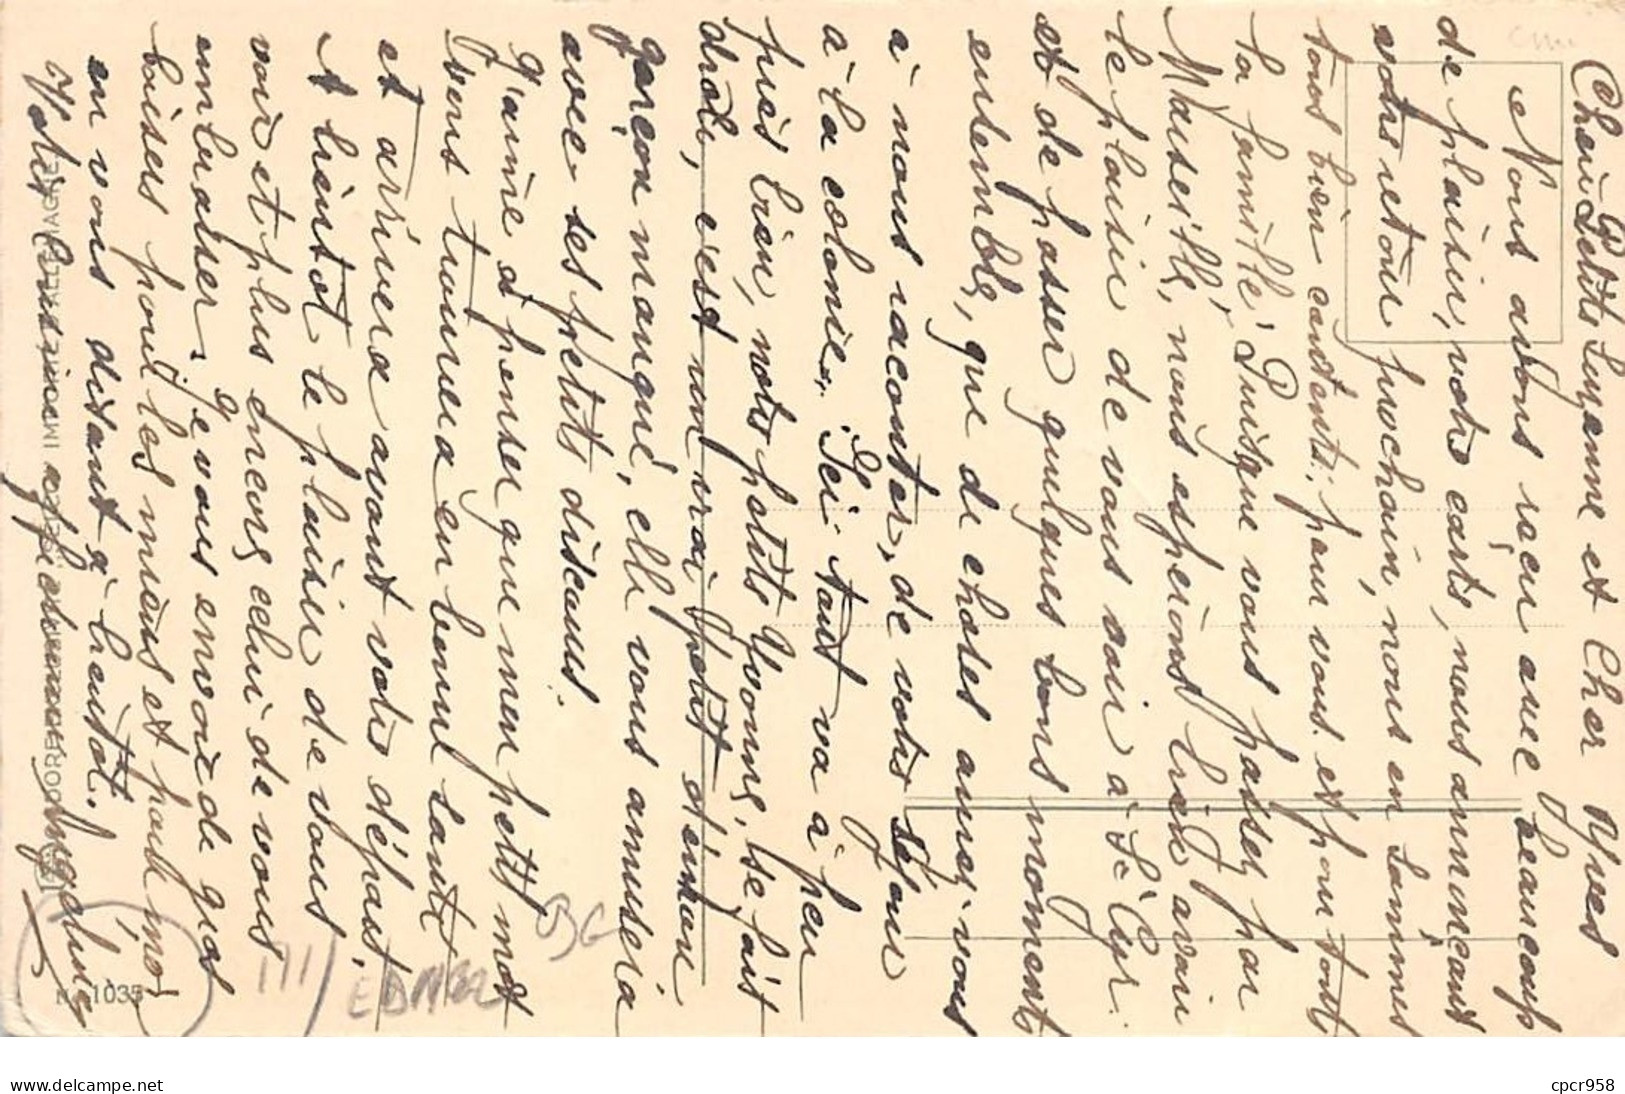 Cheris Petits Suzanne et Cher Yves
Nous avons reçu avec beaucoup
de plaisir, votre carte, nous annoncant
votre retour prochain, nous en sommes
tous bien contents: pour vous. et pour tout
la famille, Puisque vous passez par
Marseille, nous espérons bien avoir
le plaisir de vous voir à St Cyr.
et de passer quelques bons moment
ensemble, que de choses aurez-vous
à nous raconter, de votre séjour
à la colonie. Ici tout va à peu
près bien, notre petite Yvonne, se fait
drole, c'est un vrai petit démon
garçon manqué, elle vous amusera
avec ses petits discours.
J'aime à penser que mon petit mot
vous trouvera en bonne santé
et arrivera avant votre départ.
A bientot le plaisir de vous
voir et plus encore celui de vous
embrasser. Je vous envoie de gros
baisers pour les miens et pour moi
en vous disant à bientot.
Votre Cousine affectionnée Angeline
N. 1035
EDMR2
delcampe.net
cpcr958